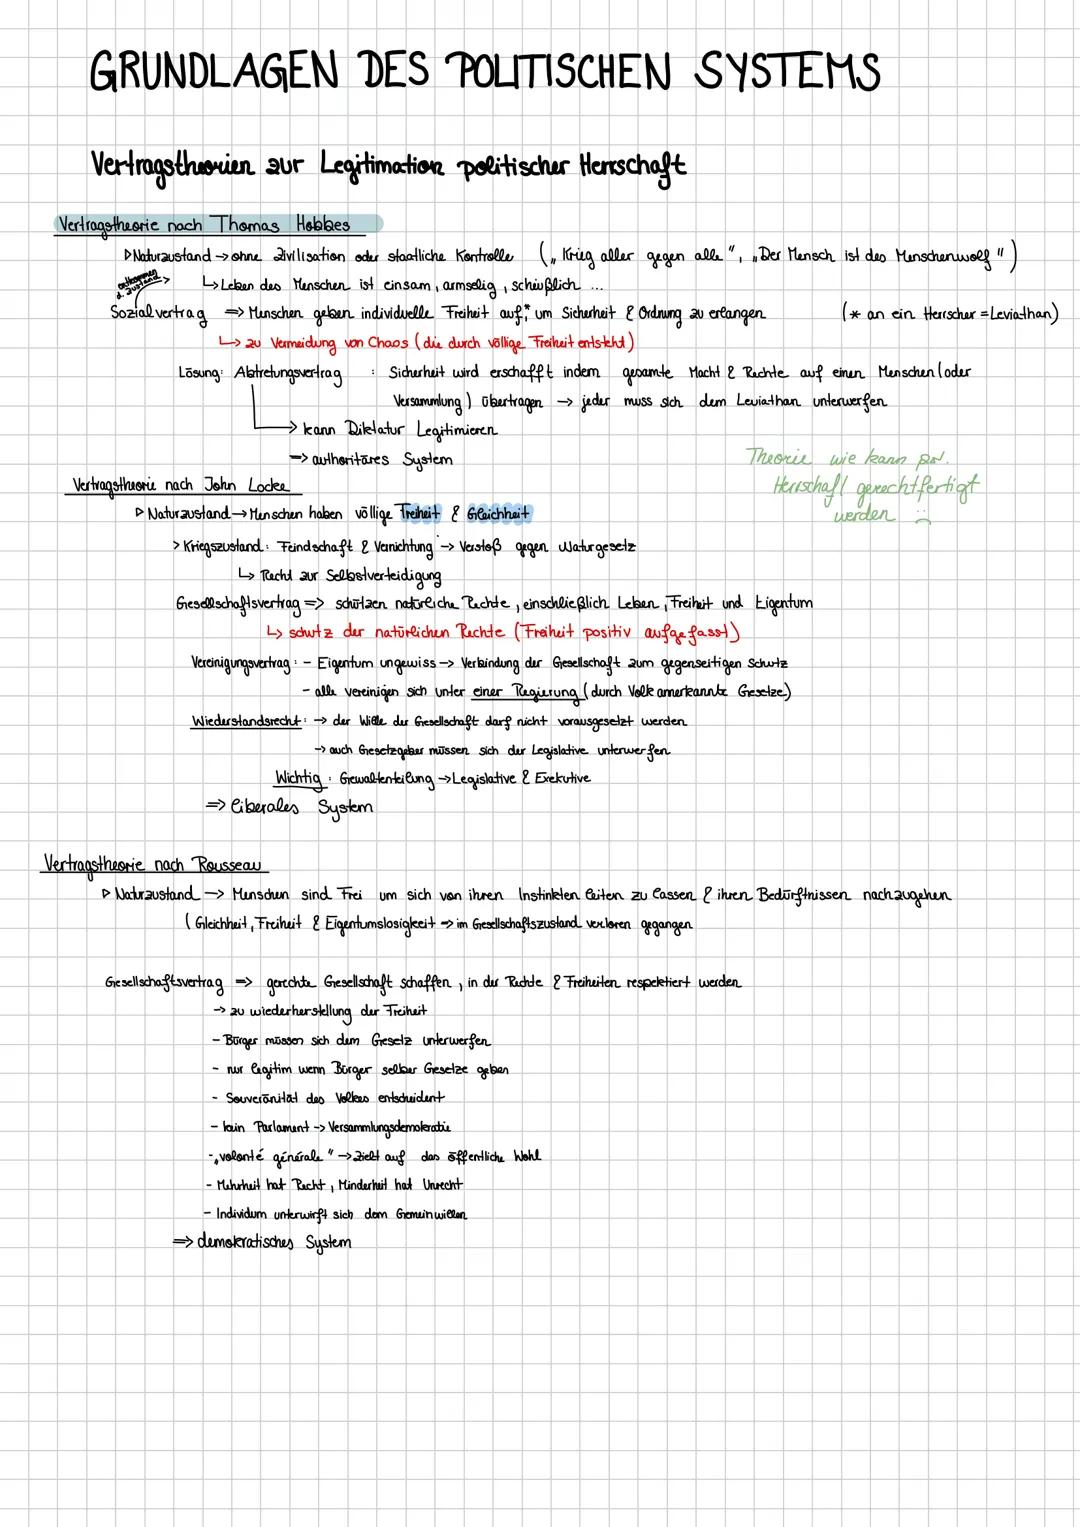 GRUNDLAGEN DES POLITISCHEN SYSTEMS
Vertragstheorien zur Legitimation politischer Herrschaft
Vertragstheorie nach Thomas Hobbes
▷Naturzustand → ohne Zivilisation oder staatliche Kontrolle („Krieg aller gegen alle", „Der Mensch ist des Menschenwolf")
entkommen d. Zustand
↳ Leben des Menschen ist einsam, armselig, scheußlich ...
Sozialvertrag => Menschen geben individuelle Freiheit auf,* um Sicherheit & Ordnung zu erlangen (* an ein Herrscher = Leviathan)
↳ zu Vermeidung von Chaos (die durch völlige Freiheit entsteht)
Lösung: Abtretungsvertrag : Sicherheit wird erschafft indem gesamte Macht & Rechte auf einen Menschen (oder
Versammlung) übertragen → jeder muss sich dem Leviathan unterwerfen
→ kann Diktatur Legitimieren
=> authoritäres System
Theorie wie kann pol.
Herrschaft gerechtfertigt
werden
Vertragstheorie nach John Locke
▷ Naturzustand → Menschen haben völlige Freiheit & Gleichheit
> Kriegszustand: Feindschaft & Vernichtung → Verstoß gegen Naturgesetz
↳ Recht zur Selbstverteidigung
Gesellschaftsvertrag => schützen natürliche Rechte, einschließlich Leben, Freiheit und Eigentum
↳ schutz der natürlichen Rechte (Freiheit positiv aufgefasst)
Vereinigungsvertrag: - Eigentum ungewiss → Verbindung der Gesellschaft zum gegenseitigen Schutz
- alle vereinigen sich unter einer Regierung (durch Volk anerkannte Gesetze)
Wiederstandsrecht: → der Wille der Gesellschaft darf nicht vorausgesetzt werden
→ auch Gesetzgeber müssen sich der Legislative unterwerfen
Wichtig: Gewaltenteilung → Legislative & Exekutive
=> liberales System
Vertragstheorie nach Rousseau
▷ Naturzustand → Menschen sind Frei um sich von ihren Instinkten leiten zu lassen & ihren Bedürftnissen nachzugehen
(Gleichheit, Freiheit & Eigentumslosigkeit → im Gesellschaftszustand verloren gegangen
Gesellschaftsvertrag => gerechte Gesellschaft schaffen, in der Rechte & Freiheiten respektiert werden
→ zu wiederherstellung der Freiheit
- Bürger müssen sich dem Gesetz unterwerfen
- nur legitim wenn Bürger selber Gesetze geben
- Souveränität des Volkes entscheident
- kein Parlament → Versammlungsdemokratie
- „volonté générale" → zielt auf das öffentliche Wohl
- Mehrheit hat Recht, Minderheit hat Unrecht
- Individum unterwirft sich dem Gemeinwillen
=> demokratisches System